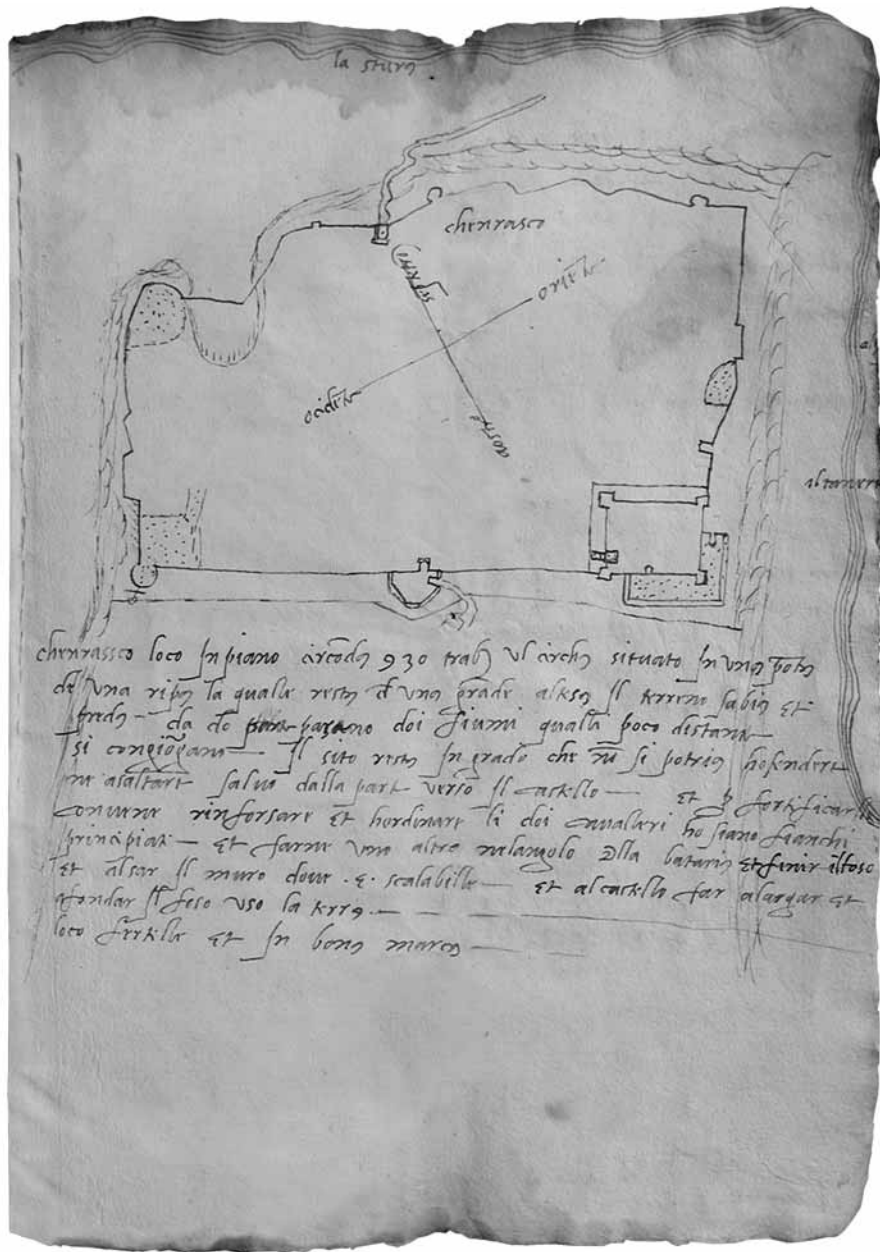 la stura
chenrasco
oriēte
ocidēte
ostro
il tanero
chenrassco loco In piano circōda 930 trab) vl circha situato In una pōta
de una ripa la qualle resta d una grāde altesa Il terreno sabia et
freda da do parano doi fiumi qualla poco distanti
si congiōgano Il sito resta In grado che nō si potria hofendere
ne asaltare salvo dalla part verso Il castello et p fortificarlli
conviene rinforsare et hordinare li doi cavalleri ho siano fianchi
principiati et farne uno altro nelangolo dlla bataria et finir il foso
et alsar Il muro dove .e. scalabille et al castello far alargar et
afondar Il foso vso la terra
loco fertille et In bona marca